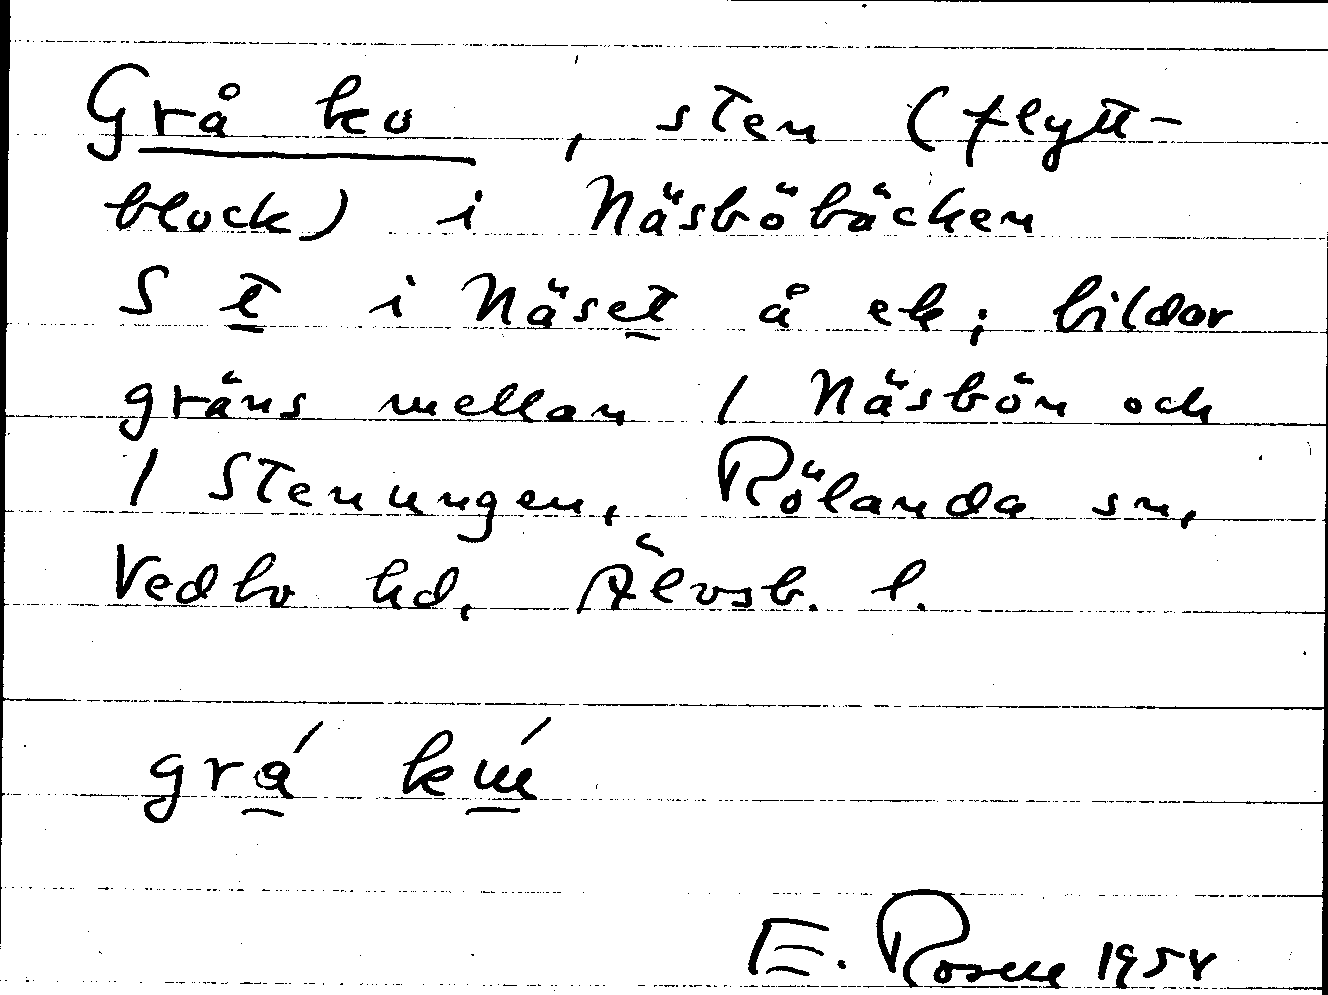 Grå ko, sten (flytt-
block) i Näsböbäcken
S t i Näset å ek; bildar
gräns mellan 1 Näsbön och
1 Stenungen, Rölanda sn,
Vedbo hd, Älvsb. l.
grá kɯ́
E. Rosell 1954